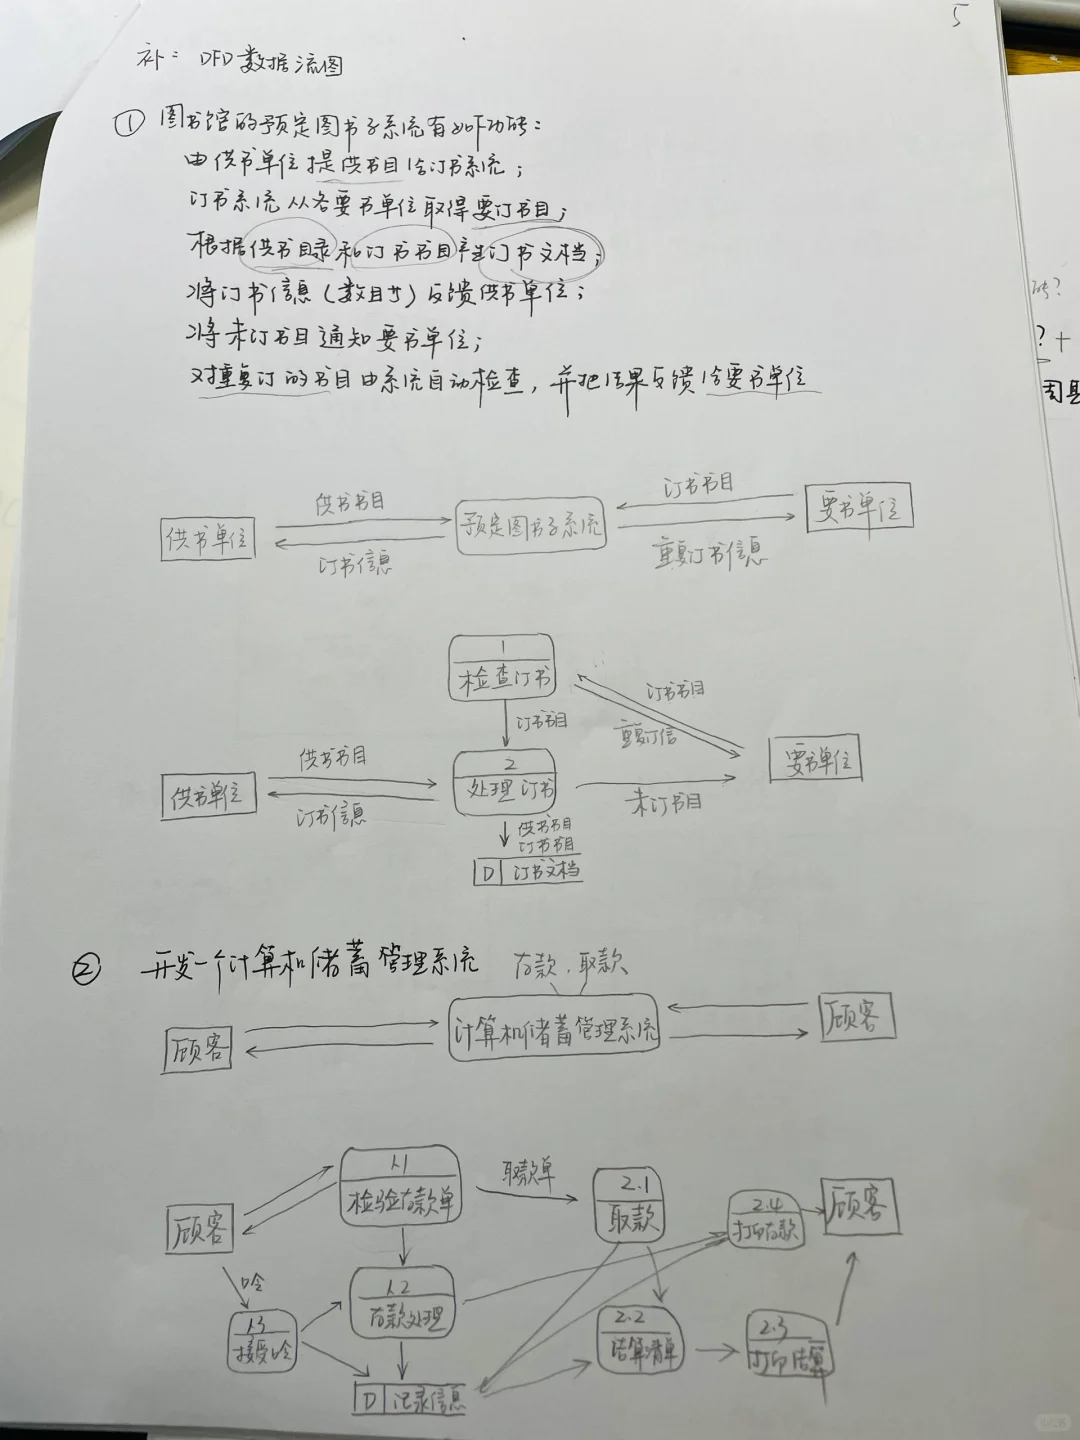 5
补: DFD数据流图
① 图书馆的预定图书子系统有如下功能:
由供书单位提供书目给订书系统;
订书系统从各要书单位取得要订书目;
根据供书目录和订书书目产生订书文档;
将订书信息(数目等)反馈供书单位;
将未订书目通知要书单位;
对重复订的书目由系统自动检查,并把结果反馈给要书单位
供书书目
订书书目
供书单位
预定图书子系统
要书单位
订书信息
重复订书信息
1
检查订书
订书书目
订书书目
重复订信
供书书目
2
处理订书
要书单位
供书单位
订书信息
未订书目
供书书目
订书书目
D 订书文档
② 开发一个计算机储蓄管理系统 存款、取款
顾客
计算机储蓄管理系统
顾客
1.1
检验存款单
取款单
2.1
取款
2.4
打印存款
顾客
顾客
1.2
存款处理
1.3
2.2
结算清单
2.3
打印结算
D 记录信息